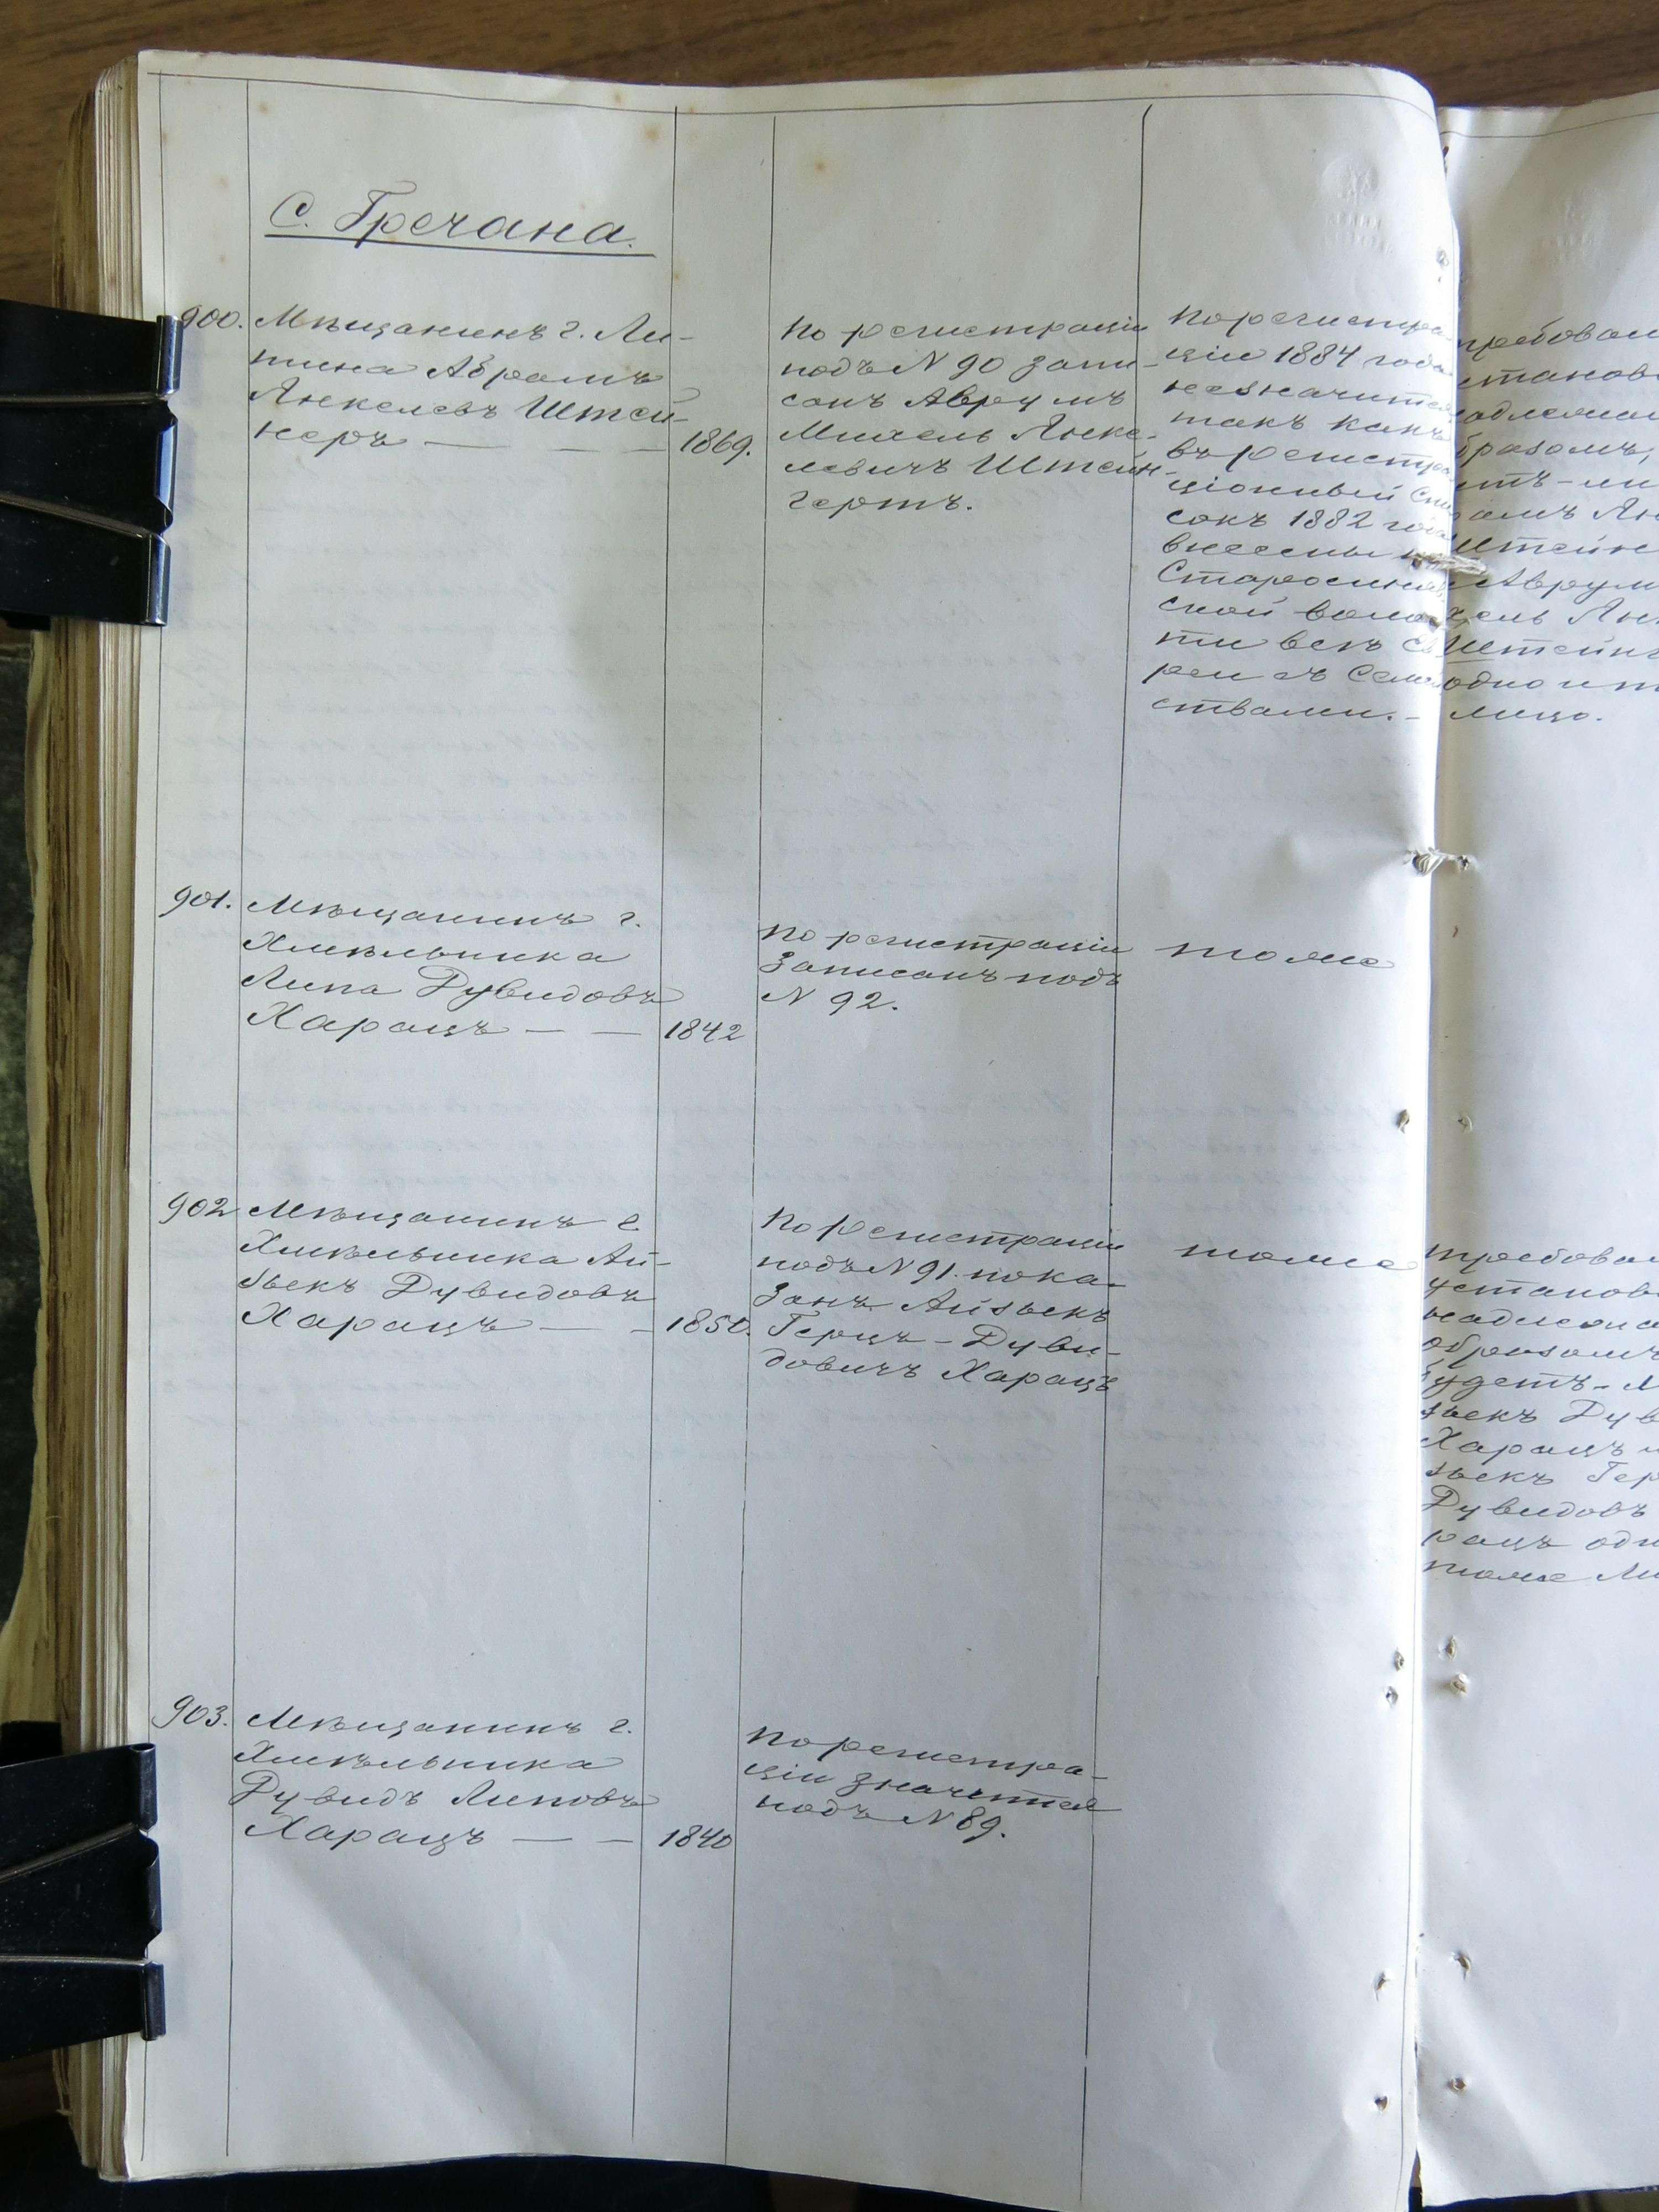 С. Гречана.
900. Мѣщанинъ г. Ли-
тина Абрамъ
Янкелевъ Штей-
неръ — — — 1869.
По регистраціи
подъ N 90 запи-
санъ Аврумъ
Михель Янке-
левичъ Штейн-
гертъ.
По регистра
ціи 1884 года
не значится
такъ какъ
въ регистра
ціонный Спи
сокъ 1882 года
внесены
Старосиняв
ской волос
ти всѣ Ев
реи съ Семей
ствами. –
требован
станов
адлежа
бразомъ,
етъ-ли
амъ Ян
Штейне
Аврум
хель Ян
Штейнг
одно и т
лицо.
901. Мѣщанинъ г.
Хмѣльника
Липа Дувидовъ
Харацъ — — 1842
По регистраціи
Записанъ подъ
N 92.
тоже
902 Мѣщанинъ г.
Хмѣльника Ай-
зыкъ Дувидовъ
Харацъ — – 1850.
По Регистраціи
подъ N 91. пока-
занъ Айзыкъ
Герцъ-Дуви-
довичъ Харацъ
тоже
требован
установ
надлежа
образомъ
будетъ-
зыкъ Дув
Харацъ и
зыкъ Гер
Дувидовъ
рацъ одн
тоже Ли
903. Мѣщанинъ г.
Хмѣльника
Дувидъ Липовъ
Харацъ — — 1840
По регистра-
ціи Значится
подъ N 89.